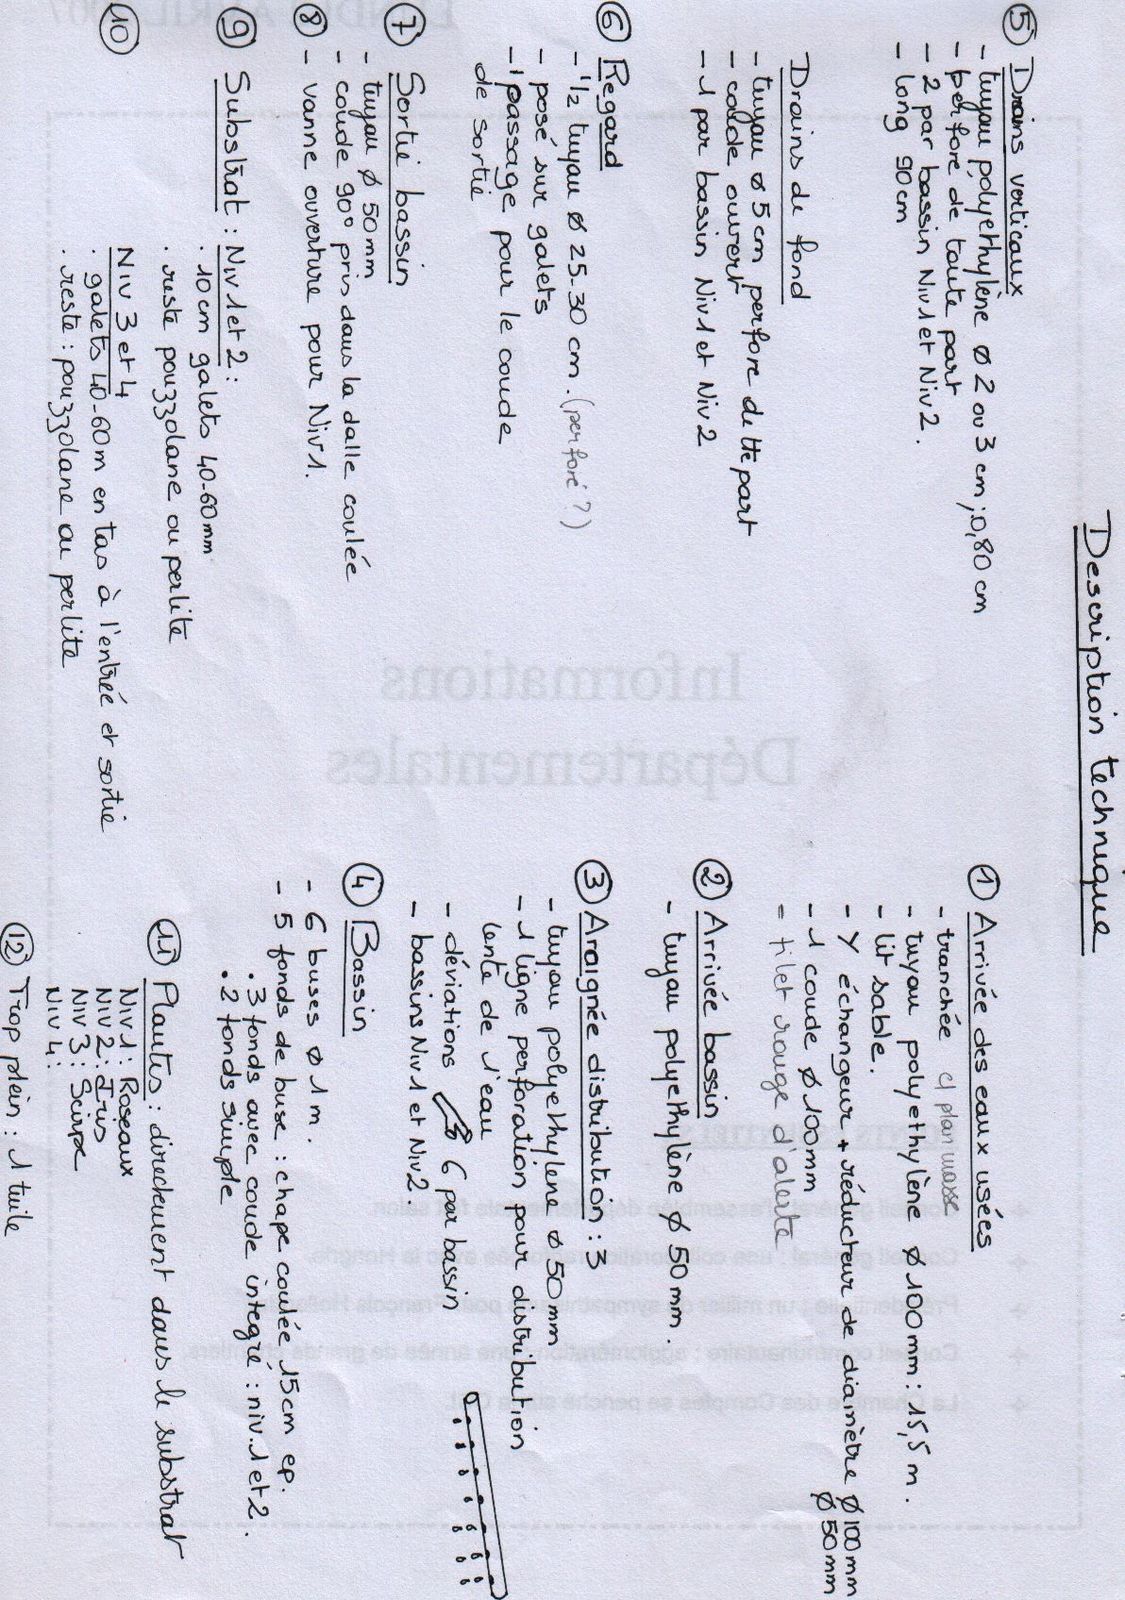 Description technique
⑤ Drains verticaux
- tuyau polyethylène ø 2 ou 3 cm ; 0,80 cm
- perforé de toute part
- 2 par bassin Niv1 et Niv2.
- long 90cm
Drains de fond
- tuyau ø 5 cm perforé de tte part
- coude ouvert
- 1 par bassin Niv1 et Niv2
⑥ Regard
- 1/2 tuyau ø 25-30 cm. (perforé ?)
- posé sur galets
- 1 passage pour le coude
de sortie
⑦ Sortie bassin
- tuyau ø 50mm
- coude 90° pris dans la dalle coulée
⑧ - vanne ouverture pour Niv1.
⑨ Substrat : Niv1 et 2 :
. 10cm galets 40-60mm
. reste pouzzolane ou perlite
⑩ Niv 3 et 4
. galets 40-60m en tas à l'entrée et sortie
. reste : pouzzolane ou perlite
① Arrivée des eaux usées
- tranchée cf plan masse
- tuyau polyethylène ø 100mm : 15,5 m.
- lit sable.
- Y échangeur + réducteur de diamètre ø 100mm
ø 50mm
- 1 coude ø 100mm
- filet rouge d'alerte
② Arrivée bassin
- tuyau polyethylène ø 50mm.
③ Araignée distribution : 3
- tuyau polyethylene ø 50mm
- 1 ligne perforation pour distribution
lente de l'eau
- déviations 6 par bassin
- bassins Niv1 et Niv2.
④ Bassin
- 6 buses ø 1m.
- 5 fonds de buse : chape coulée 15cm ep.
. 3 fonds avec coude integré : niv.1 et 2.
. 2 fonds simple
⑪ Plantes : directement dans le substrat
Niv1 : Roseaux
Niv 2 : Iris
Niv 3 : Scirpe
Niv 4 :
⑫ Trop plein : 1 tuile
Informations
Départementales